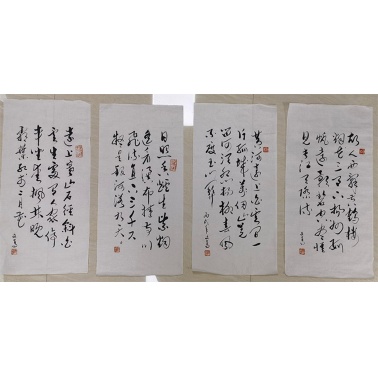 故人西辞黄鹤楼
烟花三月下扬州孤
帆远影碧空尽惟
见长江天际流
黄河远上白云间一
片孤城万仞山羌
笛何须怨杨柳春风
不度玉门关
日照香炉生紫烟
遥看瀑布挂前川
飞流直下三千尺
疑是银河落九天
远上寒山石径斜白
云生处有人家停
车坐爱枫林晚
霜叶红于二月花